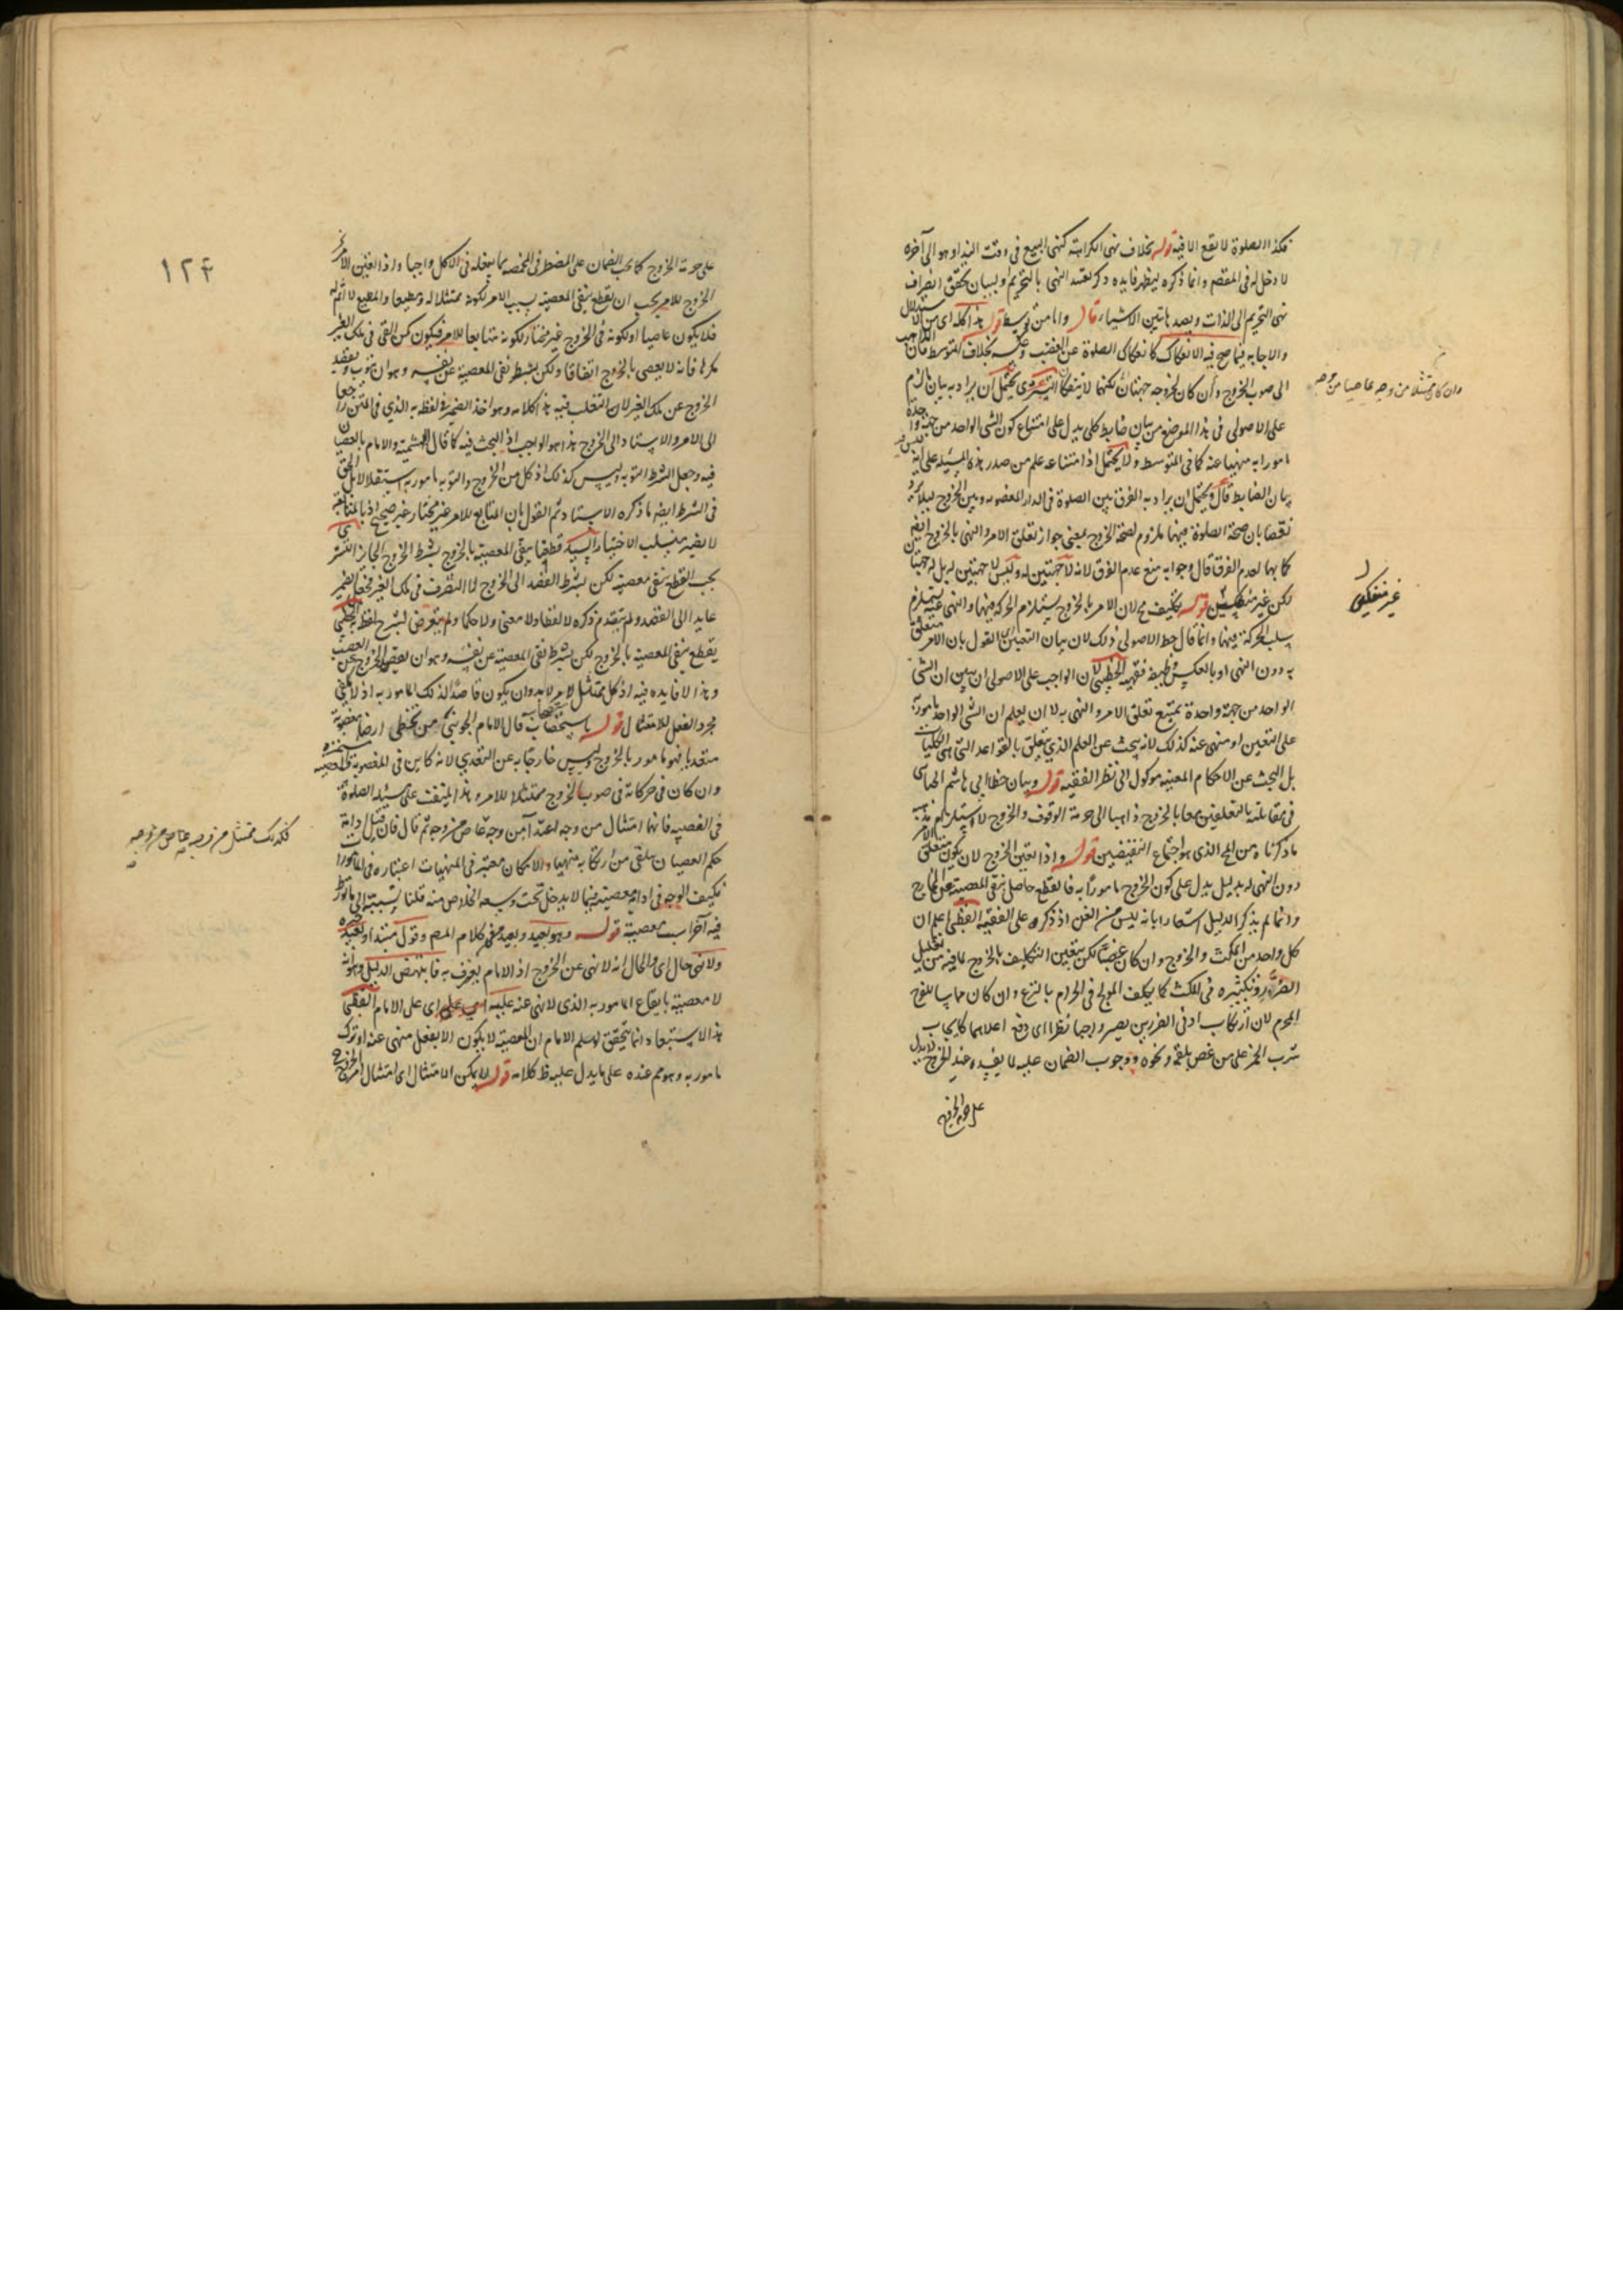 فكذا الصلوة لا يقع الا فيه قوله بخلاف نهى الكراهة كنهى البيع فى وقت النداء وهو الى آخره
لا دخل له فى المقصم وانما ذكره ليظهر فايده ذكر بقيد النهى بالتحريم ولبيان تحقق انصراف
نهى التحريم الى الذات وبصد هاتين الاشياء قال واما من توسط قوله هذا كله اى من الاستدلال
والاجابه فيما صح فيه الانفكاك كانفكاك الصلوة عن الغصب وعكسه بخلاف المتوسط فان الذاهب
الى صوب الخروج وان كان لخروجه جهتان لكنهما لا ينفكان التسترى يحتمل ان يراد به بيان ما لزم
على الاصولى فى هذا الموضع من بيان ضابط كلى يدل على امتناع كون الشى الواحد من جهة واحدة
مامورا به منهيا عنه كما فى المتوسط ولا يحتمل اذ امتناعه علم من صدر هذه المسئلة على انه ليس فيه
بيان الضابط قال ويحتمل ان يراد به الفرق بين الصلوة فى الدار المغصوبه وبين الخروج ليلا يرد
نقضا بان صحة الصلوة فيهما ملزوم لصحة الخروج بمعنى جواز تعلق الامر والنهى بالخروج
كا بها لعدم الفرق قال وجوابه منع عدم الفرق لانه لا جهتين له وليس لا جهتين له بل له جهتان
لكن غير منفكين قوله تكليف مح لان الامر بالخروج يستلزم الحركة فيهما والنهى عنه يستلزم
سلب الحركة فيهما وانما قال حظ الاصولى ذلك لان بيان التعيين اى القول بان الامر متعلق
به دون النهى او بالعكس وظيفة فقهيه الخطيبى لان الواجب على الاصولى ان يبين ان الشى
الواحد من جهة واحدة يمتنع تعلق الامر والنهى به لا ان يعلم ان الشى الواحد مامور به
على التعيين او منهى عنه كذلك لانه يبحث عن العلم الذى يتعلق بالقواعد التى هى الكليات
بل البحث عن الاحكام المعينه موكول الى نظر الفقيه قوله وبيان خطا ابى هاشم الجباى
فى مقابلته بالتعلقين معا بالخروج ذاهبا الى حرمة الوقوف والخروج لاستلزام مذهبه
ما ذكرناه من المح الذى هو اجتماع النقيضين قوله واذا تعين الخروج لان يكون متعلق الامر
دون النهى له بدليل يدل على كون الخروج مامورا به فالقطع حاصل بنفى المعصية عن الخارج
وانما لم يذكر الدليل اشعارا بانه ليس من الفن اذ ذكره على الفقيه القطبى اعلم ان
كل واحد من المكث والخروج وان كان غصبا لكن يتعين التكليف بالخروج لما فيه من تقليل
الضرر وتكثيره فى المكث كما يكلف المولج فى الحرام بالنزع وان كان مماسا للفرج
المحرم لان ارتكاب ادنى الضررين يصير واجبا نظرا اى دفع اعلاهما كايجاب
شرب الخمر على من غص بلقمة ونحوه ووجوب الضمان عليه لا يفيده عند الخروج لا يدل
على حرمة الخروج
وان كان ممتثلا من وجه عاصيا من وجه
غير منفكين
١٢٤
على حرمة الخروج كما يجب الضمان على المضطر فى المخمصه بما يتعلق فى الاكل واجبا واذا تعين الامر
الخروج للامر يجب ان نقطع بنفى المعصيه بسبب الامر لكونه ممتثلا له ومطيعا والمطيع لا اثم له
فلا يكون عاصيا اولكونه فى الخروج غير مختار لكونه متابعا للامر فيكون كمن القى فى ملك الغير
مكرها فانه لا يعصى بالخروج اتفاقا ولكن بشرط نفى المعصيه عن نفسه وهو ان يتوب ويقصد
الخروج عن ملك الغير لان التغلب فيه هذا كلامه وهو اخذ الضمير فى لفظه به الذى فى المتن راجعا
الى الامر والاستاد الى الخروج هذا هو الواجب اذ البحث فيه كما قال الهشمية والامام بالعصيان
فيه وجعل الشرط التوبه وليس كذلك اذ كل من الخروج والتوبه مامور به استقلالا بل الحق
فى الشرط ايضا ما ذكره الاستاد ثم القول بان المتابع للامر غير مختار غير صحيح اذ بالمتابعة
لا يصير منسلب الاختيار السيد قطعنا بنفى المعصية بالخروج بشرط الخروج الجايز التسترى
يجب القطع بنفى معصيته لكن بشرط القصد الى الخروج لا التصرف فى ملك الغير فجعل الضمير
عايدا الى القصد ولم يتقدم ذكره لا لفظا ولا معنى ولا حكما ولم يتعرض لشرح لفظه الخطيبى
يقطع بنفى المعصية بالخروج لكن بشرط نفى المعصية عن نفسه وهو ان يقصد الخروج عن الغصب
وهذا لا فايده فيه اذ كل ممتثل لامر لابد وان يكون قاصدا لذلك المامور به اذ لا يكفى
مجرد الفعل للامتثال قوله باستصحاب قال الامام الجوينى من تخطى ارضا مغصوبة
متعديا فهو مامور بالخروج وليس خارجا به عن التعدى لانه كاين فى المغصوبة
وان كان فى حركاته فى صوب الخروج ممتثلا للامر وهذا يلتفت على مسئلة الصلوة
فى الغصب فانها امتثال من وجه اعتدا من وجه ثم قال فان قيل ادامة
حكم العصيان يتلقى من ارتكابه منهيا والامكان معتبر فى المنهيات اعتباره فى المامورات
فكيف الوجه فى ادامة معصية فيما لا يدخل تحت وسعه الخلاص منه قلنا تسببه الى ما تورط
فيه آخرا سبب معصيته قوله وهو بعيد وبعيد فى كلام المصم وقول مبتدا وبعيد خبره
ولا نهى حال اى والحال انه لا نهى عن الخروج اذ الامام يعترف به فاينتهض الدليل وهو انه
لا معصية بايقاع المامور به الذى لا نهى عنه عليه اى على الامام القطبى
هذا الاستبعاد انما يتحقق لو سلم الامام ان المعصية لا يكون الا بفعل منهى عنه او ترك
مامور به وهو مم عنده على ما يدل عليه ظ كلامه قوله ولا يمكن الامتثال اى امتثال امر الخروج
فكذلك ممتثل من وجه عاص من وجه